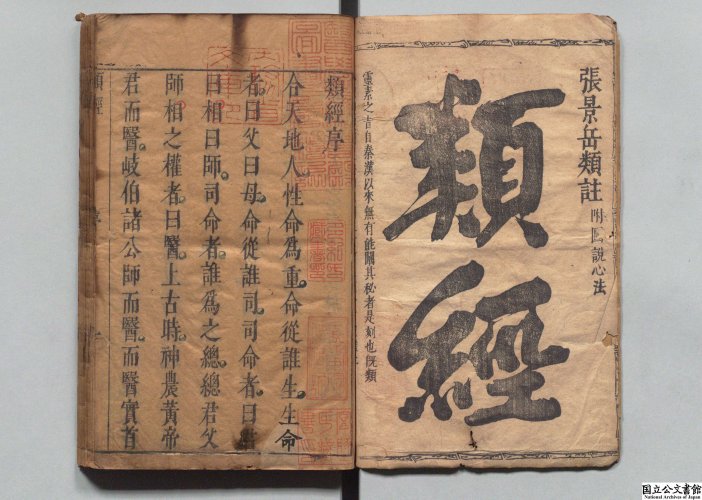 張景岳類註 附圖說心法
類經
靈素之旨自秦漢以來無有能闡其秘者是刻也旣類
類經序
合天地人性命爲重命從誰生生命
者曰父曰母命從誰司司命者曰君
曰相曰師司命者誰爲之總總君父
師相之權者曰醫上古時神農黃帝
君而醫岐伯諸公師而醫而醫實首
類經
序
国立公文書館
National Archives of Japan